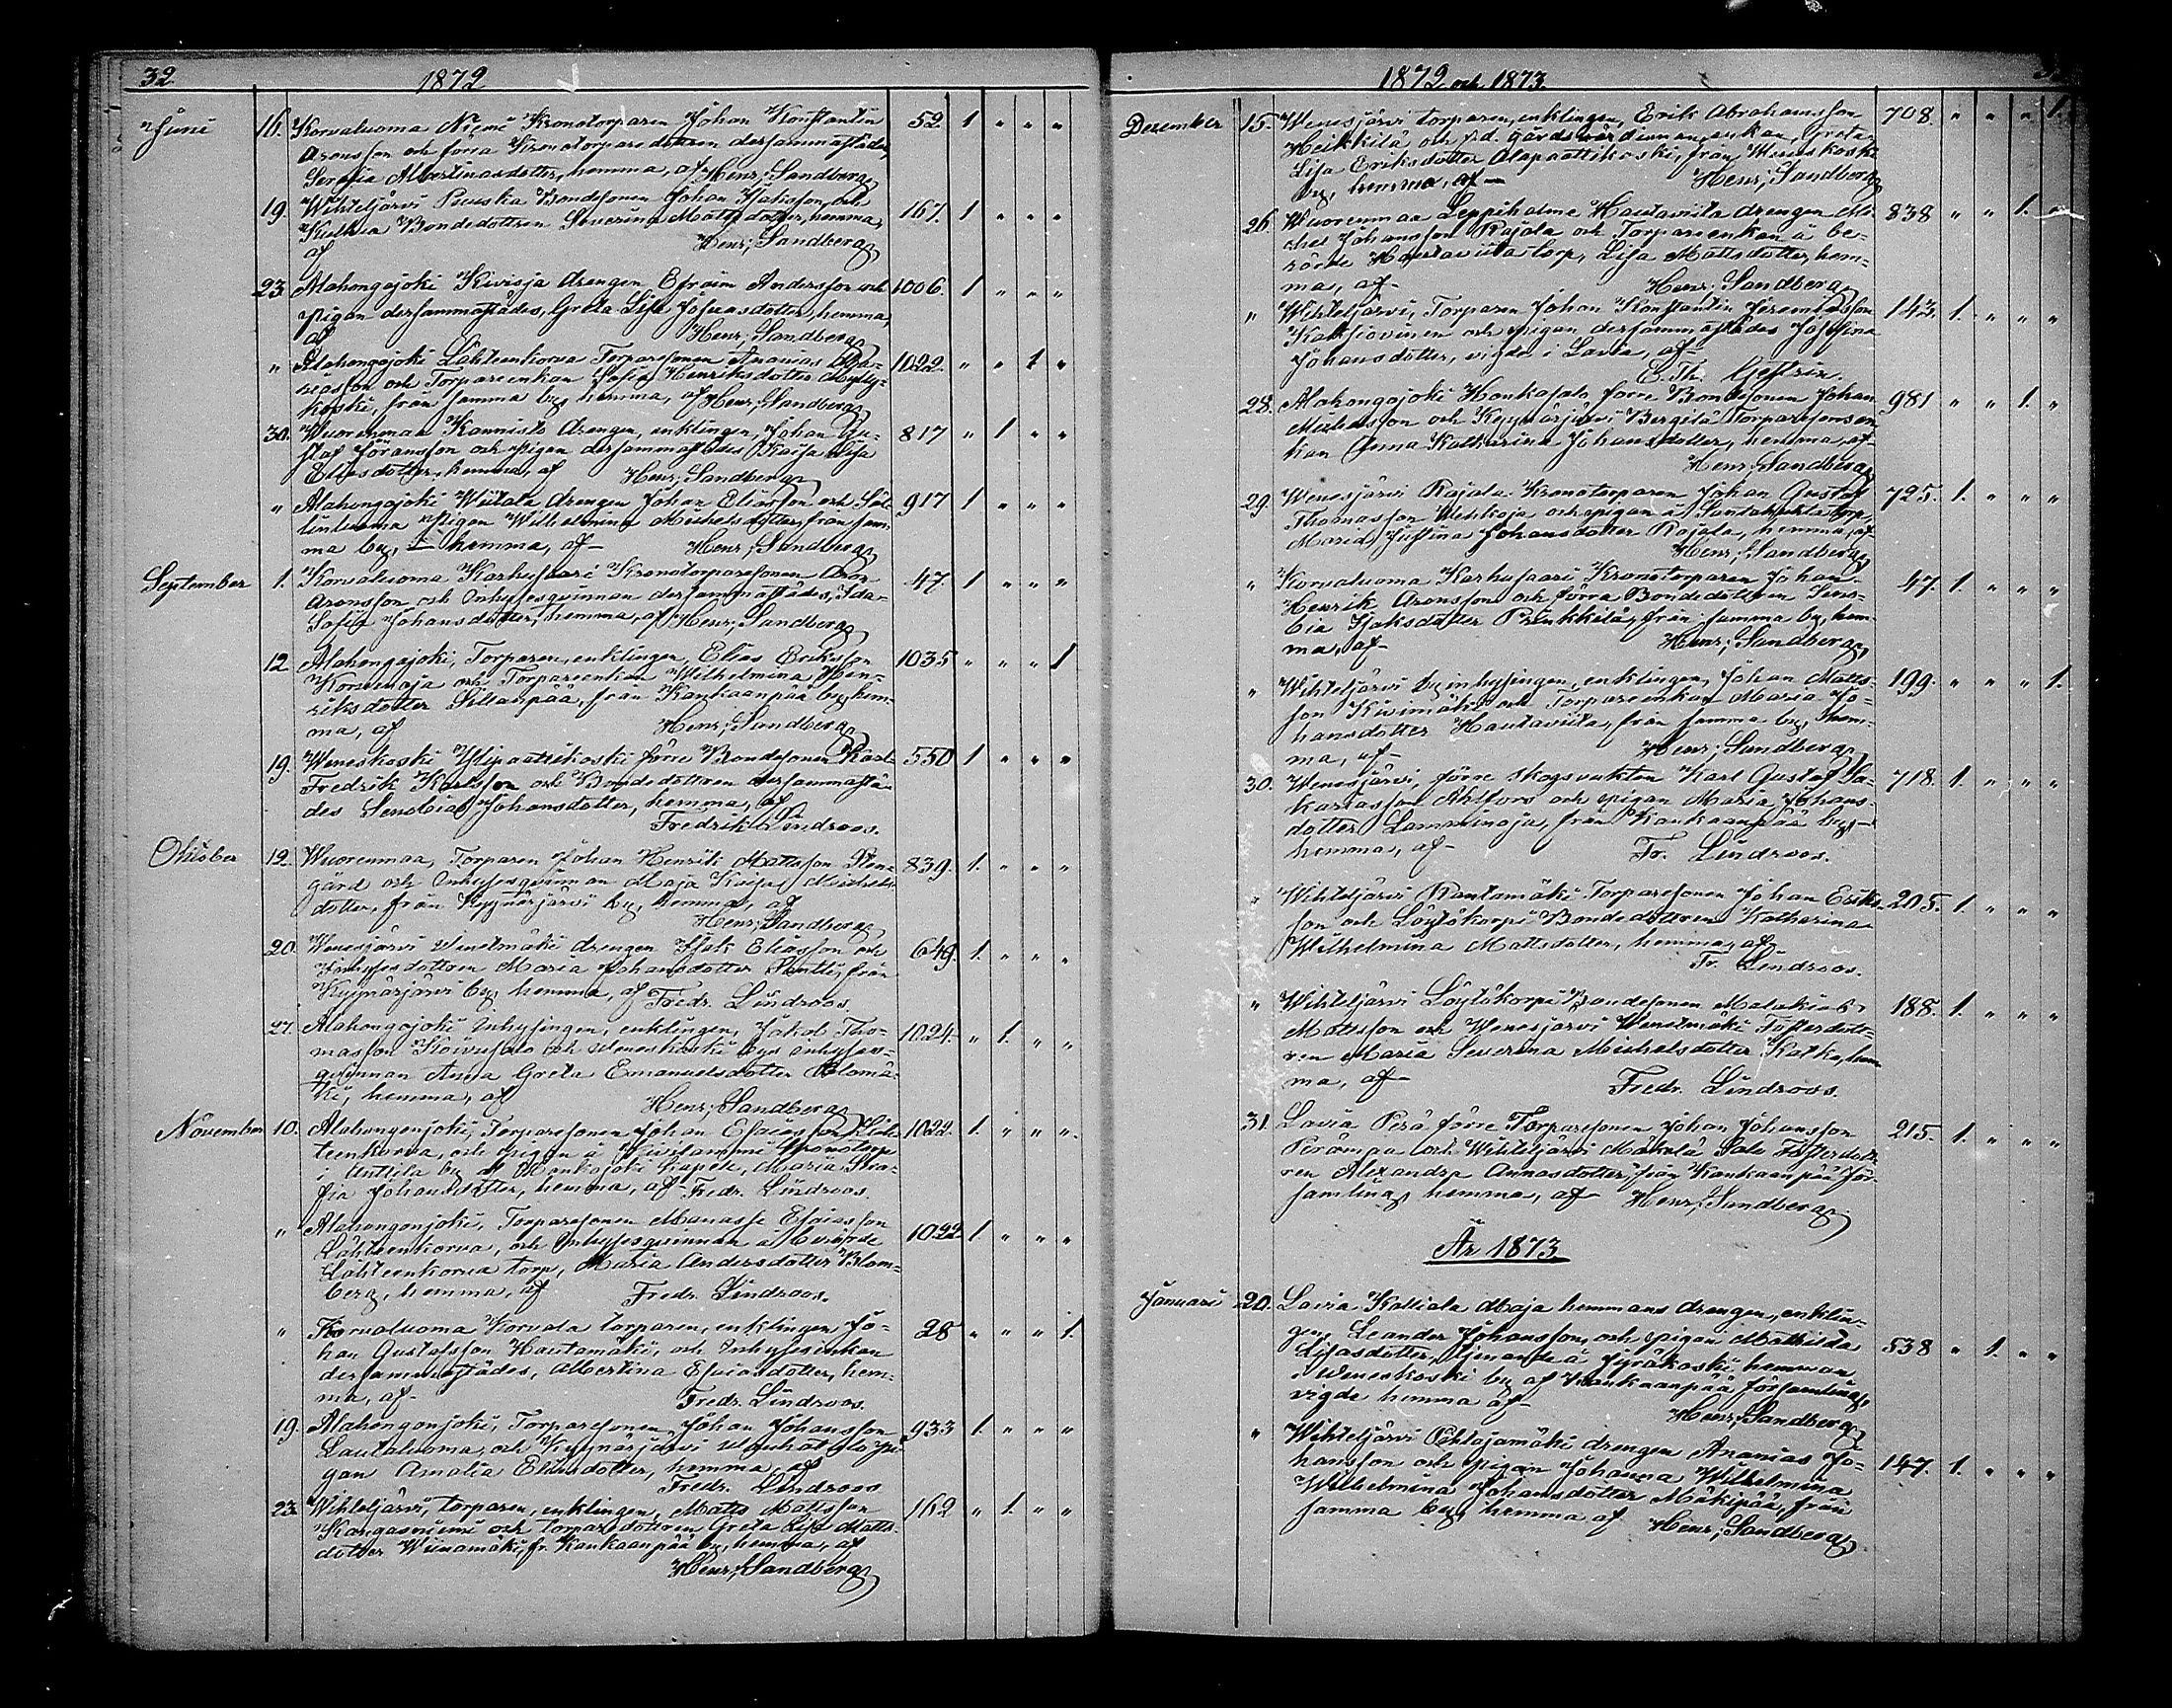 32
1872
Juni 16. Korvaluoma Niemi Kronotorparen Johan Konstantin 52 1 " " "
Aronsson och förra Kronotorparedottren dersammastädes,
Serafia Albertinasdotter, hemma, af Henr; Sandberg
19. Wihteljärvi Peuska Bondesonen Johan Isaksson, och 167. 1 " " "
Bondedottren Severina Mattsdotter, hemma,
af Henr; Sandberg
23. Alahongajoki Kivioja drengen Efraim Andersson och 1006. 1 " " "
pigan dersammastädes, Greta Lisa Josuasdotter, hemma,
af Henr; Sandberg
" Alahongajoki Lähteenkorva Torparesonen Ananias Esa- 1022. " " 1 "
iasson och Torpareenkan Sofia Henriksdotter Mylly-
koski, från samma by, hemma, af Henr; Sandberg
30. Wuorenmaa Kannisto drengen, enklingen, Johan Gu- 817 " 1 " "
staf Göransson och pigan dersammastädes Kaisa Lisa
Eliasdotter, hemma, af Henr; Sandberg
" Alahongajoki Wiitala drengen Johan Eliasson och
917 1 " " "
pigan Wilhelmina Michelsdotter, från sam-
ma by, hemma, af Henr; Sandberg
September 1. Korvaluoma Karhusaari Kronotorparesonen Aron 47 1 " " "
Aronsson och Inhysesqvinnan dersammastädes, Ida
Sofia Johansdotter, hemma, af Henr; Sandberg
12 Alahongajoki, Torparen, enklingen, Elias Eriksson 1035 " " " 1
och Torpareenkan Wilhelmina Hen-
riksdotter Sillanpää, från Kankaanpää by, hem-
ma, af Henr; Sandberg
19. Weneskoski Ylipaattikoski förre Bondesonen Karl 550 1 " " "
Fredrik Karlsson och Bondedottren dersammastä-
des Senobia Johansdotter, hemma, af
Fredrik Lindroos.
Oktober 12. Wuorenmaa, Torparen Johan Henrik Mattsson Sten- 839. 1. " " "
gård och Inhysesqvinnan Maja Kaisa Michels-
dotter, från Kyynärjärvi by, hemma, af
Henr; Sandberg
20. Wenesjärvi Wenetmäki drengen Isak Eliasson och 649. 1. " " "
Inhysesdottren Maria Johansdotter från
Kyynärjärvi by, hemma, af Fredr. Lindroos.
27. Alahongajoki Inhysingen, enklingen, Jakob Tho- 1024. " 1. " "
masson Koivusalo och Weneskoski bys inhyses-
qvinnan Anna Greta Emanuelsdotter
hemma, af Henr; Sandberg
November 10. Alahongonjoki, Torparesonen Johan Esaiasson Läh- 1022. 1. " " "
teenkorva, och pigan å Kronotorp
i Anttila by af Honkajoki Kapell, Maria
Johansdotter, hemma, af Fredr. Lindroos.
" Alahongonjoki, Torparesonen Manasse Esaiasson 1022 1 " " "
Lähteenkorva, och Inhysesqvinnan å berörde
Lähteenkorva torp, Maria Andersdotter Blom-
berg, hemma, af Fredr. Lindroos.
" Korvaluoma Korvala torparen, enklingen, Jo- 28 " " " 1.
han Gustafsson Hautamäki, och Inhysesenkan
dersammastädes, Albertina Esaiasdotter, hem-
ma, af Fredr. Lindroos.
19. Alahongonjoki, Torparesonen, Johan Johansson 933 1. " " "
Lautaluoma, och Kyynärjärvi pi-
gan Amalia Eliasdotter, hemma, af
Fredr. Lindroos
23. Wihteljärvi, torparen, enklingen, Matts Mattsson 162 " 1. " "
Kangasniemi och torparedottren Greta Lisa Matts-
dotter Wiinamäki, fr. Kankaanpää by, hemma, af
Henr; Sandberg
1872 och 1873.
December 15. Wenesjärvi torparen, enklingen, Erik Abrahamsson 708. " " " 1.
Heikkilä och enkan, Greta
Lisa Eriksdotter Alapaattikoski, från Weneskoski
by, hemma, af Henr; Sandberg
26. Wuorenmaa Leppiholme Hautaviita drengen Mi- 838 " " 1. "
chel Johansson Rajala och Torpareenkan å be-
rörde Hautaviita torp, Lisa Mattsdotter, hem-
ma, af Henr; Sandberg
" Wihteljärvi, Torparen Johan Konstantin Jeremiasson 143. 1. " " "
och pigan dersammastädes Josefina
Johansdotter, vigde i Lavia, af
E. Th. Gestrin.
28. Alahongajoki Honkasalo förre Bondesonen Johan 981 " " 1. "
Michelsson och Kyynärjärvi Torparesonsen-
kan Anna Katharina Johansdotter, hemma, af
Henr; Sandberg
29. Wenesjärvi Rajala Kronotorparen Johan Gustaf 725. 1. " " "
Thomasson och pigan å torp,
Maria Justina Johansdotter Rajala, hemma, af
Henr; Sandberg
" Korvaluoma Karhusaari Kronotorparen Johan 47. 1. " " "
Henrik Aronsson och förra Bondedottren Seno-
bia Isaksdotter Prinkkilä, från samma by, hem-
ma, af Henr; Sandberg
" Wihteljärvi by inhysingen, enklingen, Johan Matts- 199. " " " 1.
son Kivimäki och Torpareenkan Maria Jo-
hansdotter Hautaviita, från samma by, hem-
ma, af Henr; Sandberg
30. Wenesjärvi, förre skogsvakten Karl Gustaf Sa- 718. 1. " " "
kariasson Ahlfors och pigan Maria Johans-
dotter Lamminoja, från Kankaanpää by,
hemma, af Fr. Lindroos.
" Wihteljärvi Rantamäki Torparesonen Johan Eriks- 205. 1. " " "
son och Löytökorpi Bondedottren Katharina
Wilhelmina Mattsdotter, hemma, af
Fr. Lindroos.
" Wihteljärvi Löytökorpi Bondesonen Malakias 188. 1. " " "
Mattsson och Wenesjärvi Wenetmäki Fosterdott-
ren Maria Severina Michelsdotter Kotka, hem-
ma, af Fredr. Lindroos.
31. Lavia Perä förre Torparesonen Johan Johansson 215. 1. " " "
Perämaa och Wihteljärvi Mäkelä Salo Fosterdott-
ren Alexandra Annasdotter, från Kankaanpää för-
samling, hemma, af Henr; Sandberg
År 1873
Januari 20. Lavia Kalliala Maja hemmans drengen, enklin-
gen, Leander Johansson, och pigan Mathilda 538 " 1. " "
Lisasdotter, tjenande å Jyräkoski hemman
i Weneskoski by af Kankaanpää församling,
vigde hemma af Henr; Sandberg
" Wihteljärvi Pihlajamäki drengen Ananias Jo-
hansson och pigan Johanna Wilhelmina 147. 1. " " "
Wilhelmina Johansdotter Mäkipää, från
samma by, hemma af Henr; Sandberg